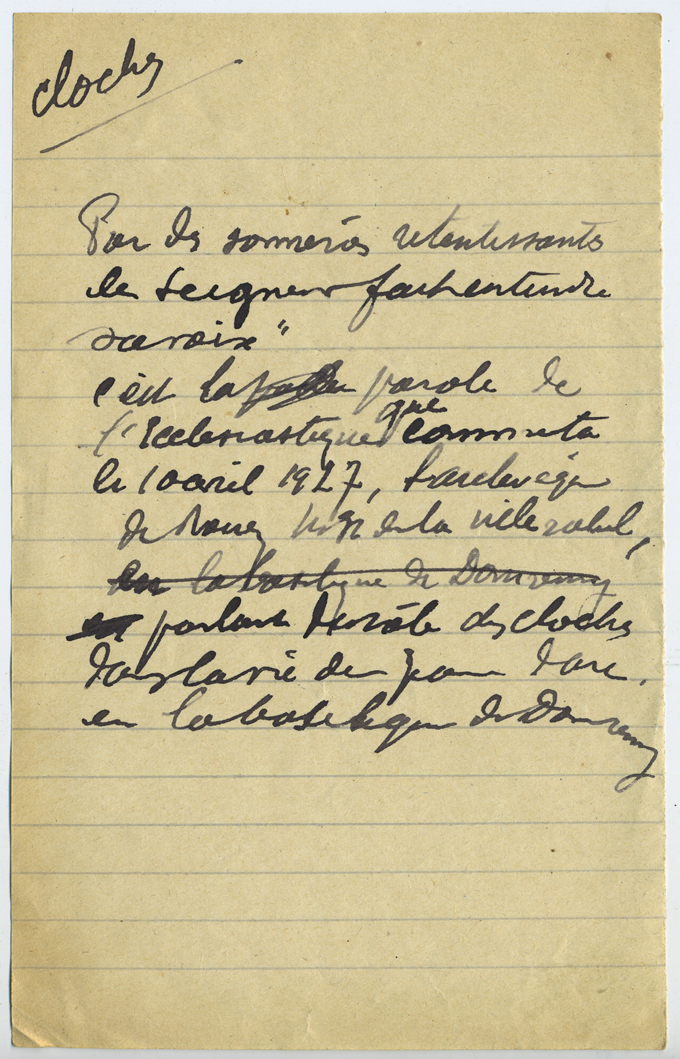 cloches
Par des sonneries retentissants
le Seigneur fait entendre
sa voix"
c'est la parole de
l'Ecclesiastique que commenta
le 10 avril 1927, l'archevêque
de Rouen Mgr de la Villerabel,
en la basilique de Domremy
parlant du rôle des cloches
dans la vie de Jeanne d'arc.
en la basilique de Domremy